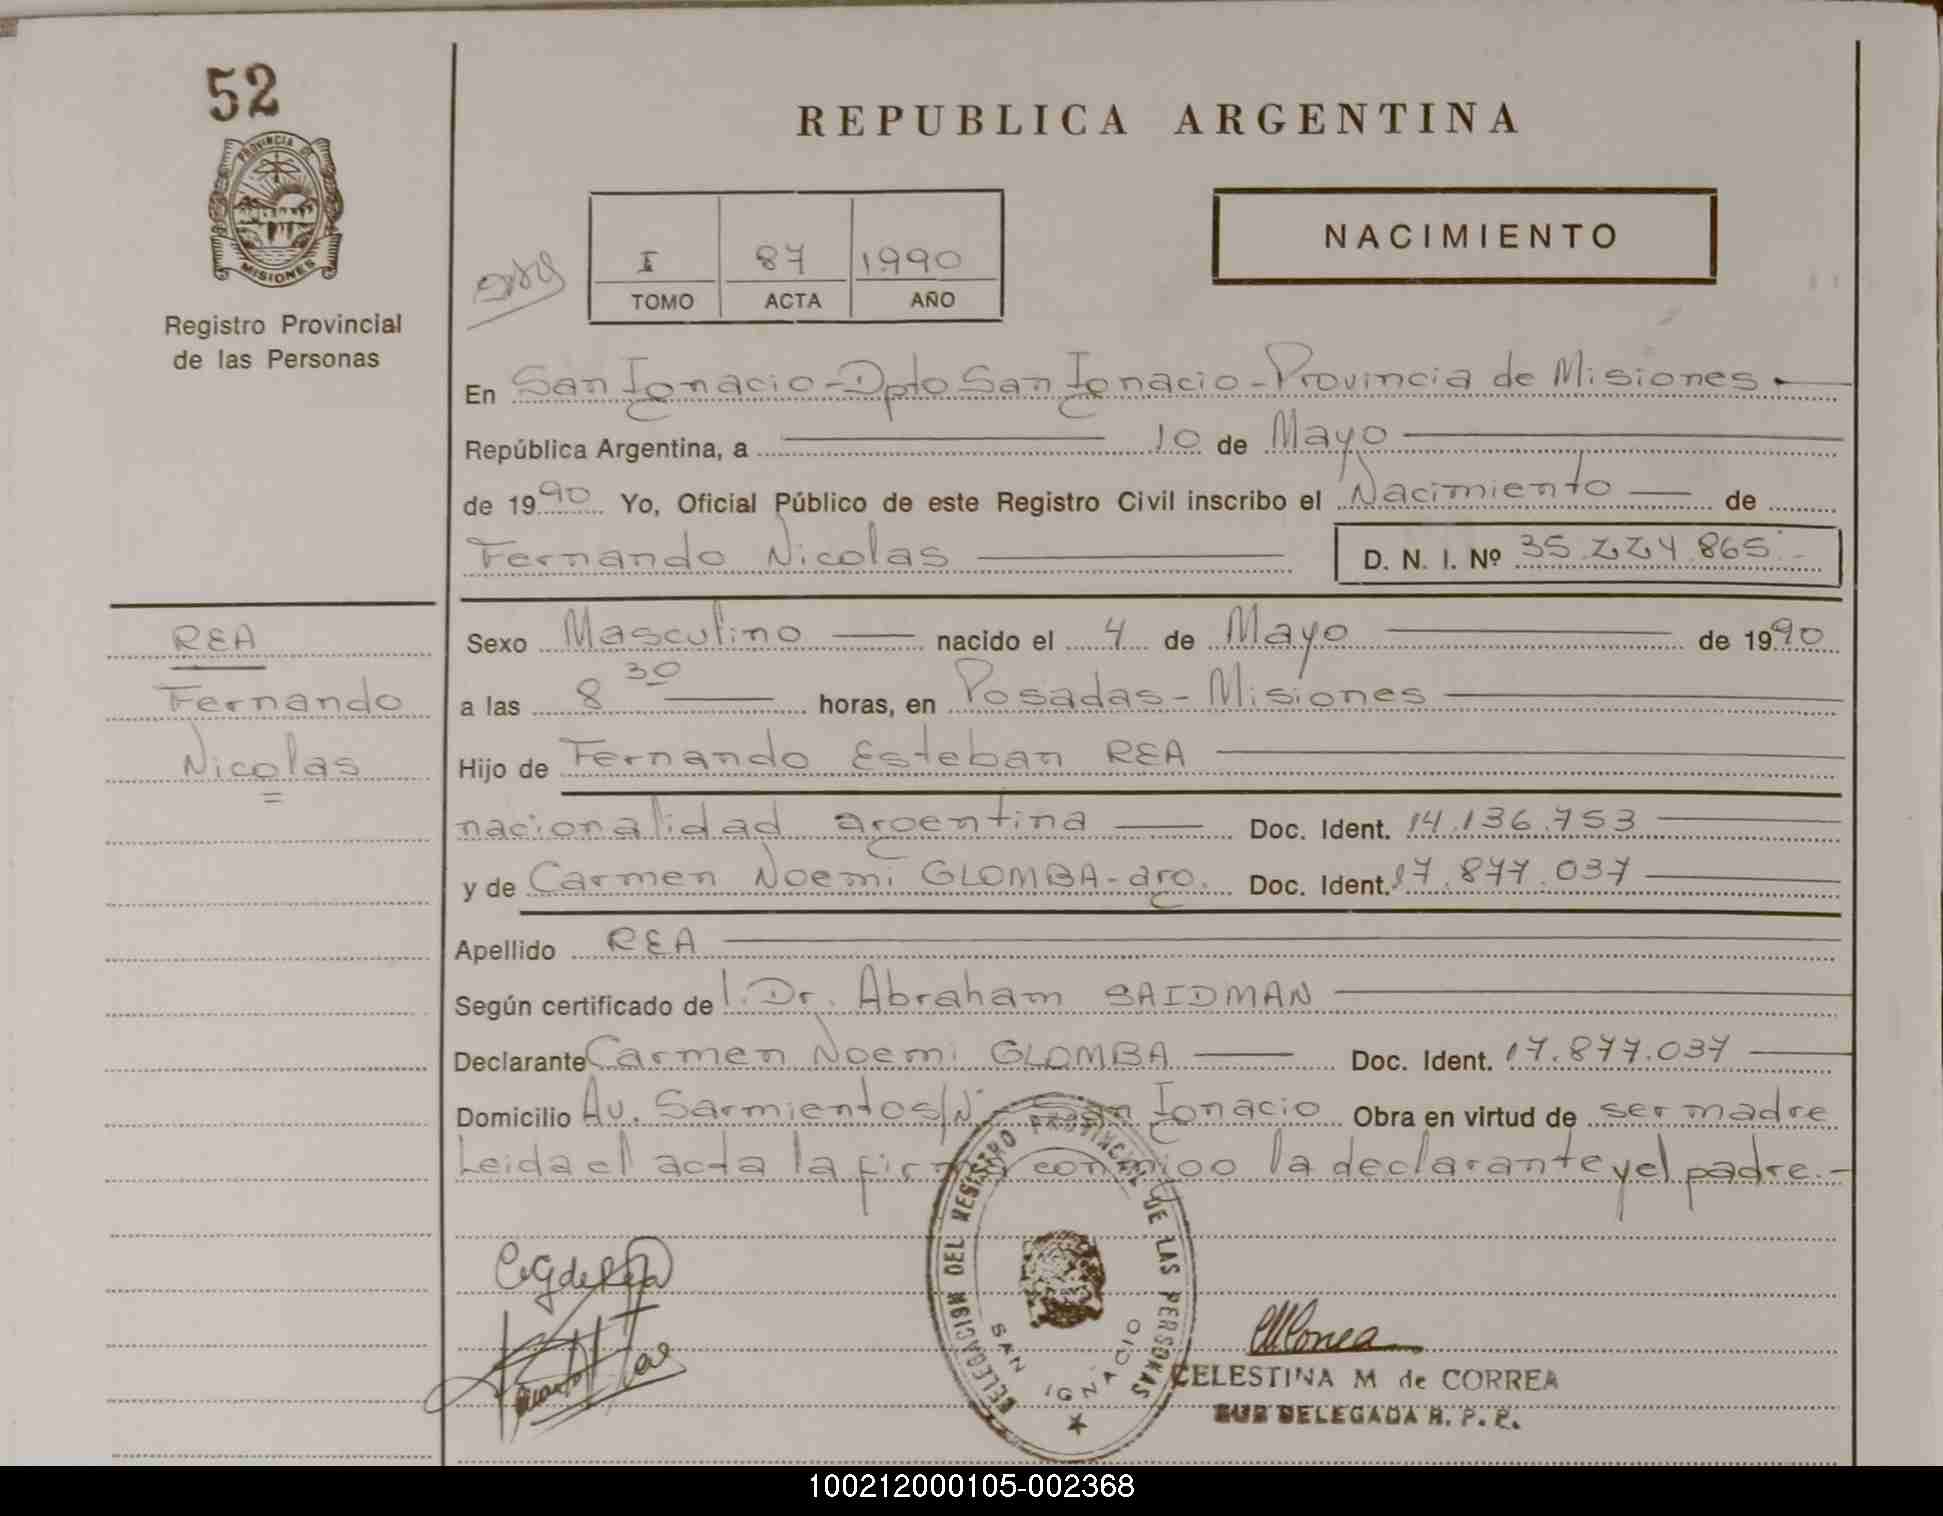 52
PROVINCIA DE
MISIONES
Registro Provincial
de las Personas
REPUBLICA ARGENTINA
NACIMIENTO
I 87 1990
TOMO ACTA AÑO
En San Ignacio - Dpto San Ignacio - Provincia de Misiones.
República Argentina, a 10 de Mayo
de 1990 Yo, Oficial Público de este Registro Civil inscribo el Nacimiento de
Fernando Nicolas D. N. I. Nº 35.224.865
REA
Fernando
Nicolas
Sexo Masculino nacido el 4 de Mayo de 1990
a las 8 30 horas, en Posadas - Misiones
Hijo de Fernando Esteban REA
nacionalidad argentina Doc. Ident. 14.136.753
y de Carmen Noemi GLOMBA - arg. Doc. Ident. 17.877.037
Apellido REA
Según certificado de l. Dr. Abraham SAIDMAN
Declarante Carmen Noemi GLOMBA Doc. Ident. 17.877.037
Domicilio Av. Sarmiento s/N - San Ignacio Obra en virtud de ser madre
Leida el acta la firman conmigo la declarante y el padre.-
DELEGACION DEL REGISTRO PROVINCIAL DE LAS PERSONAS
SAN IGNACIO
C G de Rea
CMCorrea
CELESTINA M de CORREA
SUB DELEGADA R. P. P.
100212000105-002368